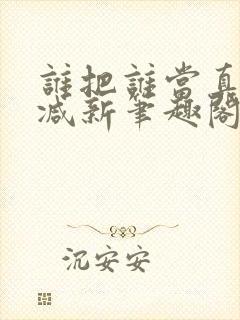 誰把誰當真
减新筆趣閣
沉安安